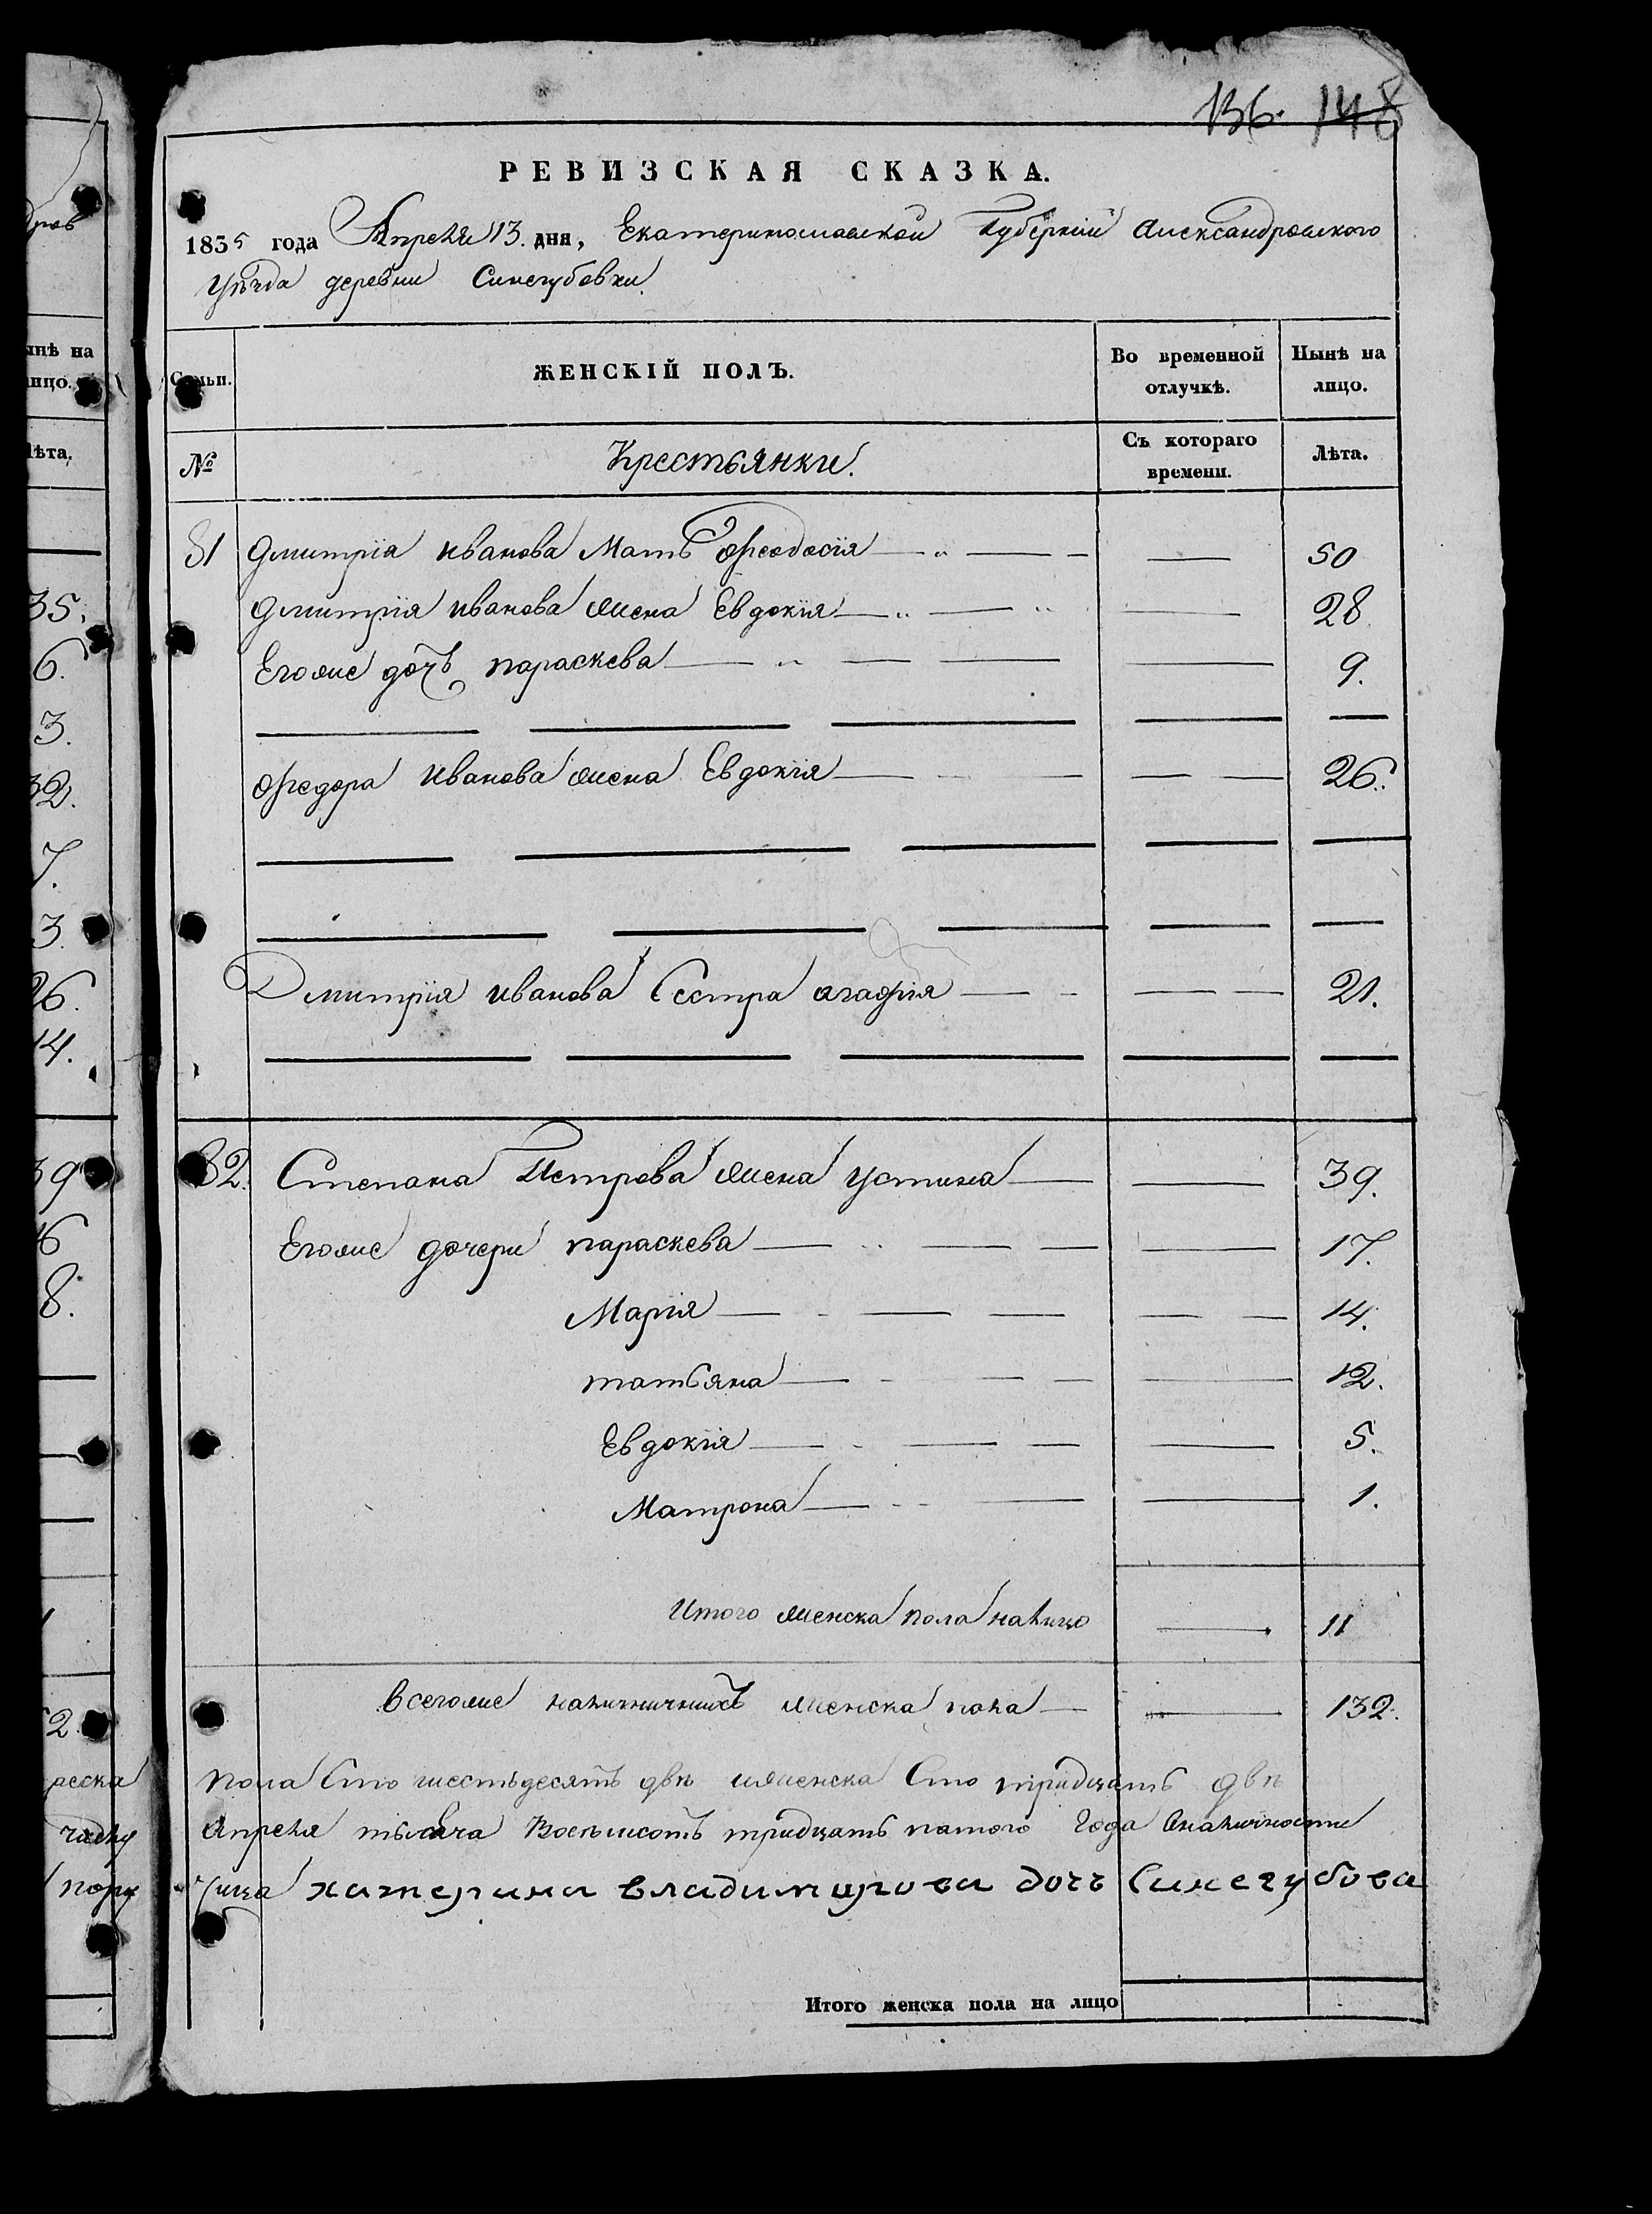 136. 148
РЕВИЗСКАЯ СКАЗКА.
1835 года Апреля 13. дня, Екатеринославской Губерніи Александровского
уѣзда деревни Синегубовки
Семьи. ЖЕНСКІЙ ПОЛЪ. Во временной отлучкѣ. Нынѣ на лицо.
№ Крестьянки. Съ котораго времени. Лѣта.
31 Дмитрія иванова Мать Феодосія 50
Дмитрія иванова жена Евдокія 28
Егоже дочь параскева 9.
Федора иванова жена Евдокія 26.
Дмитрія иванова Сестра агафія 21.
32. Степана Петрова жена устина 39.
Егоже дочери параскева 17.
Марія 14.
татьяна 12.
Евдокія 5.
Матрона 1.
Итого женска пола налицо 11
Всегоже наличнихъ женска пола 132.
пола Сто шестьдесятъ двѣ иженска Сто тридцать двѣ
Апреля тысяча Восемсотъ тридцать пятого Года Вналичности
катерина владимирова дочъ Синегубова
Итого женска пола на лицо
нынѣ на
лицо.
Лѣта.
35.
6.
3.
32.
7.
3.
26.
14.
39
16
8.